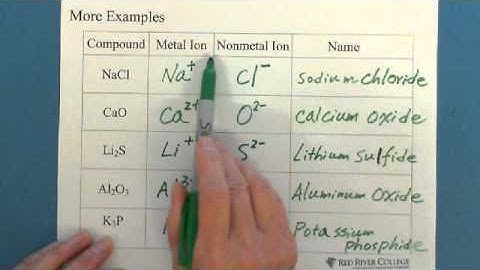 More Examples
Compound Metal Ion Nonmetal Ion Name
NaCl Na⁺ Cl⁻ Sodium chloride
CaO Ca²⁺ O²⁻ Calcium oxide
Li₂S Li⁺ S²⁻ Lithium sulfide
Al₂O₃ Aluminum oxide
K₃P Potassium
phosphide
RED RIVER COLLEGE